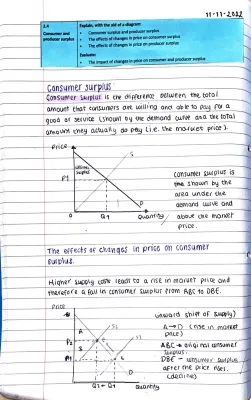 11-11-2022
2.4
Consumer and
producer surplus
Explain, with the aid of a diagram:
• Consumer surplus and producer surplus
• The effects of changes in price on consumer surplus
• The effects of changes in price on producer surplus
Evaluate:
• The impact of changes in price on consumer and producer surplus
Consumer surplus
Consumer surplus is the difference between the total
amount that consumers are willing and able to pay for a
good or service (shown by the demand curve and the total
amount they actually do pay (i.e. the market price).
Price
S
surplus
P1
D
0
Q1
Quantity
consumer surplus is
the shown by the
area under the
demand curve and
above the market
price.
The effects of changes in price on consumer
surplus.
Higher supply costs leads to a rise in market price and
therefore a fall in consumer surplus from ABC to DBE.
Price
S1
A
P2
P1
D
Q2 ← Q1
Quantity
(inward shift of supply)
A→D (rise in market
price)
ABC → original consumer
surplus.
DBE – consumer surplus
after the price rise.
(declines)